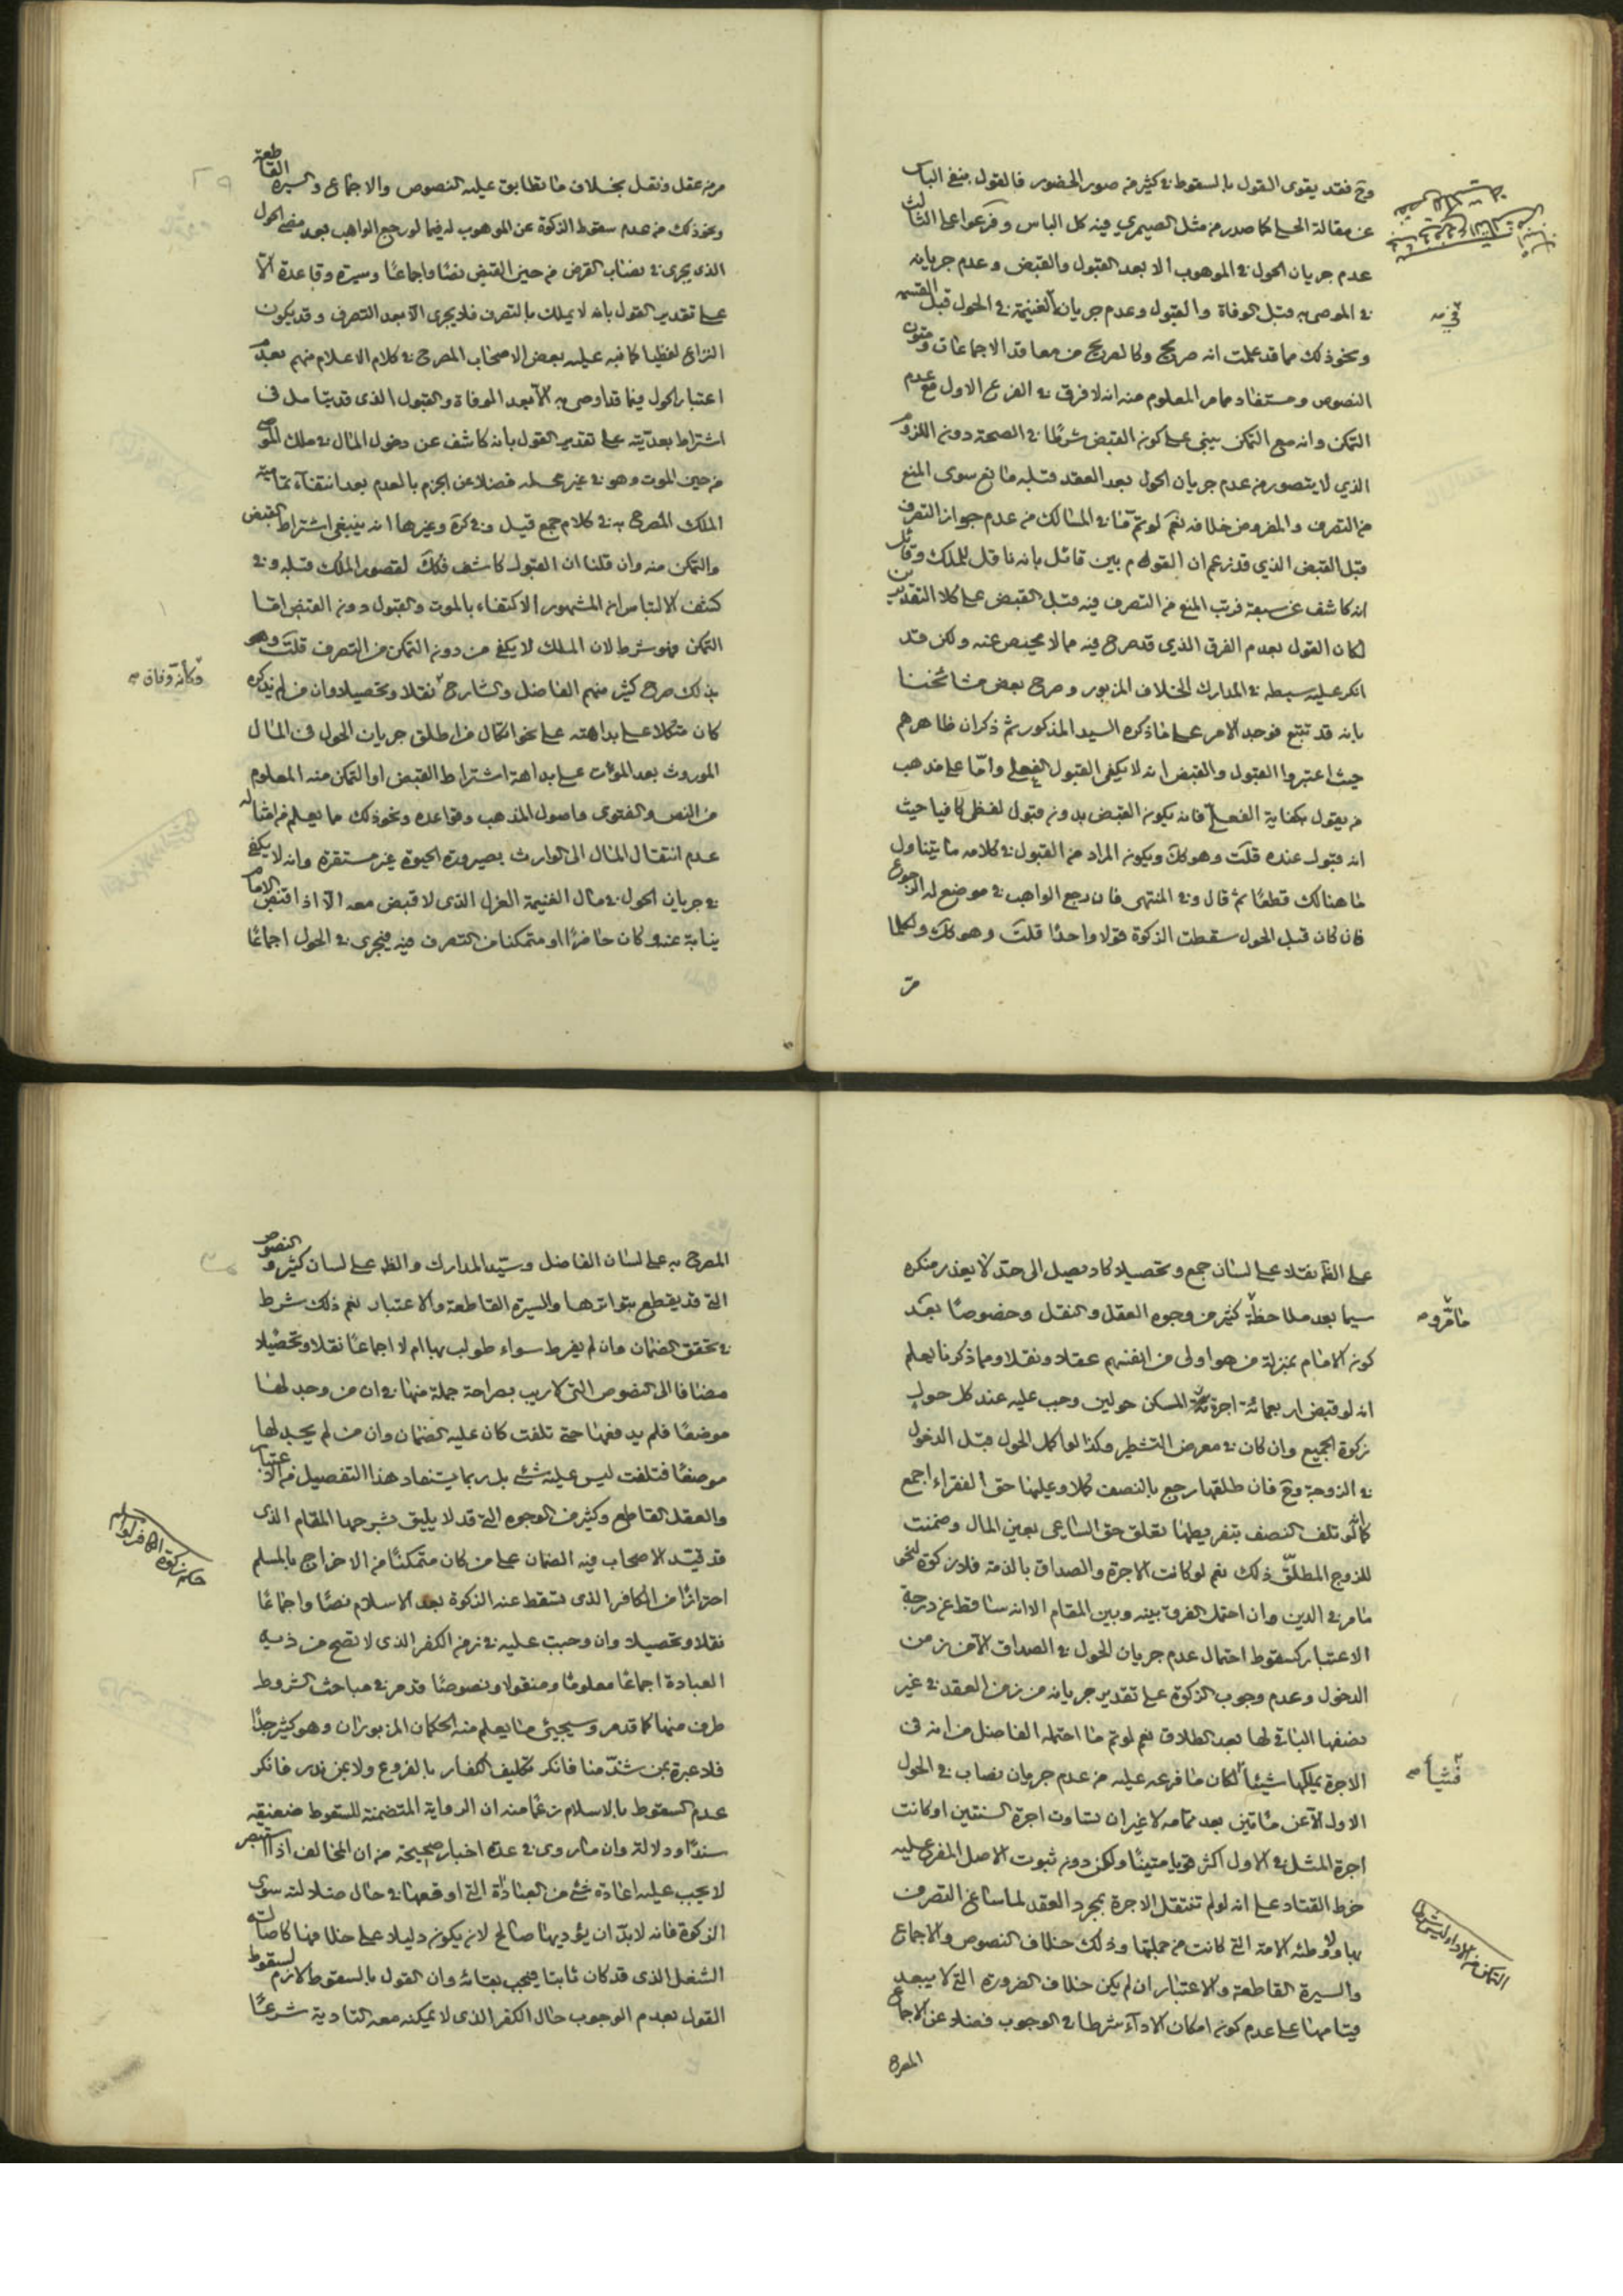 وح فقد يقوى القول بالسقوط في كثير من صور الحضور فالقول بنفي الباس
عن مقالة الحلي كما صدر من مثل الصيمري فيه كل الباس وفرعوا على الثالث
عدم جريان الحول في الموهوب الا بعد القبول والقبض وعدم جريانه
في الموصى به قبل الوفاة والقبول وعدم جريان الغنيمة في الحول قبل القسمة
ونحو ذلك مما قد علمت انه صريح وكالصريح من معاقد الاجماعات ومتون
النصوص ومستفاد مما مر المعلوم منه انه لا فرق في الفرع الاول مع عدم
التمكن وانه مع التمكن يبنى على كون القبض شرطا في الصحة دون اللزوم
الذي لا يتصور من عدم جريان الحول بعد العقد قبله مانع سوى المنع
من التصرف والمفروض خلافه نعم لو تم ما في المسالك من عدم جواز التصرف
قبل القبض الذي قد زعم ان القوم بين قائل بانه ناقل للملك وقائل
انه كاشف عن سبقه فرتب المنع من التصرف فيه قبل القبض على كلا التقديرين
لكان القول بعدم الفرق الذي قد صرح فيه مما لا محيص عنه ولكن قد
انكر عليه سبطه في المدارك الخلاف المزبور وصرح بعض مشائخنا
بانه قد تتبع فوجد الامر على ما ذكره السيد المذكور ثم ذكر ان ظاهرهم
حيث اعتبروا القبول والقبض انه لا يكفي القبول الفعلي واما على مذهب
من يقول بكفاية الفعلي فانه يكون القبض بدون قبول لفظي كافيا حيث
انه قبول عنده قلت وهو كك ويكون المراد من القبول في كلامه ما يتناول
ما هنالك قطعا ثم قال وفي المنتهى فان رجع الواهب في موضع له الرجوع
فان كان قبل الحول سقطت الزكوة قولا واحدا قلت وهو كك ولكلما
مر
من عقل ونقل بخلاف ما تطابق عليه النصوص والاجماع والسيرة القاطعة
ونحو ذلك من عدم سقوط الزكوة عن الموهوب له فيما لو رجع الواهب بعد مضي الحول
الذي يجري في نصاب القرض من حين القبض نصا واجماعا وسيرة وقاعدة الا
على تقدير القول بانه لا يملك بالتصرف فلا يجري الا بعد التصرف وقد يكون
النزاع لفظيا كما نبه عليه بعض الاصحاب المصرح في كلام الاعلام منهم بعدم
اعتبار الحول فيما قد اوصى به الا بعد الوفاة والقبول الذي قد يتامل في
اشتراط بعديته على تقدير القول بانه كاشف عن دخول المال في ملك الموصى
من حين الموت وهو في غير محله فضلا عن الجزم بالعدم بعد انتفاء تمامية
الملك المصرح به في كلام جمع قيل وفي كرة وغيرها انه ينبغي اشتراط القبض
والتمكن منه وان قلنا ان القبول كاشف فكك لقصور الملك قبله وفي
كشف الالتباس ان المشهور الاكتفاء بالموت والقبول دون القبض اما
التمكن فهو شرط لان الملك لا يكفي من دون التمكن من التصرف قلت وهو
بذلك صرح كثير منهم الفاضل والشارح نقلا وتحصيلا وان من لم يذكره
وكانه وفاق صح
كان متكلا على بداهته على نحو اتكال من اطلق جريان الحول في المال
الموروث بعد الموت على بداهة اشتراط القبض او التمكن منه المعلوم
من النص والفتوى واصول المذهب وقواعده ونحو ذلك مما يعلم من امثاله
عدم انتقال المال الى الوارث بصيرورة الحيوة غير مستقرة وانه لا يكفي
في جريان الحول في مال الغنيمة العزل الذي لا قبض معه الا اذا قبض الامام
نيابة عنه وكان حاضرا او متمكنا من التصرف فيه فيجري في الحول اجماعا
على الظ نقلا على لسان جمع وتحصيلا كاد يصل الى حد لا يعذر منكره
سيما بعد ملاحظة كثير من وجوه العقل والنقل وخصوصا بعد
كون الامام بمنزلة من هو اولى من انفسهم عقلا ونقلا ومما ذكرنا يعلم
انه لو قبض اربعمائة اجرة المسكن حولين وجب عليه عند كل حول
زكوة الجميع وان كان في معرض التشطير وكذا لو اكمل الحول قبل الدخول
في الزوجة وح فان طلقها رجع بالنصف كملا وعليها حق الفقراء اجمع
كما لو تلف النصف بتفريطها تعلق حق الساعي بعين المال وضمنت
للزوج المطلق ذلك نعم لو كانت الاجرة والصداق بالذمة فلا زكوة لنحو
ما مر في الدين وان احتمل الفرق بينه وبين المقام الا انه ساقط عن درجة
الاعتبار كسقوط احتمال عدم جريان الحول في الصداق الا من زمن
الدخول وعدم وجوب الزكوة على تقدير جريانه من زمن العقد في غير
نصفها الباقي لها بعد الطلاق نعم لو تم ما احتمله الفاضل من انه في
الاجرة يملكها شيئا لكان ما فرعه عليه من عدم جريان نصاب في الحول
فشيئا صح
الاول الا عن مائتين بعد تمامه لا غير ان تساوت اجرة السنتين او كانت
اجرة المثل في الاول اكثر قويا متينا ولكن دون ثبوت الاصل المفرع عليه
خرط القتاد على انه لو لم تنتقل الاجرة بمجرد العقد لما ساغ التصرف
بها ولا وطئه الامة التي كانت من جملتها وذلك خلاف النصوص والاجماع
والسيرة القاطعة والاعتبار ان لم يكن خلاف الضرورة التي لا يبعد
قيامها على عدم كون امكان الاداء شرطا في الوجوب فضلا عن الاجماع
المصرح
المصرح به على لسان الفاضل وسيد المدارك والظ على لسان كثير والنصوص
التي قد يقطع بتواترها والسيرة القاطعة والاعتبار نعم ذلك شرط
في تحقق الضمان وان لم يفرط سواء طولب بها ام لا اجماعا نقلا وتحصيلا
مضافا الى النصوص التي لا ريب بصراحة جملة منها في ان من وجد لها
موضعا فلم يدفعها حتى تلفت كان عليه الضمان وان من لم يجد لها
موضعا فتلفت ليس عليه شئ بل ربما يستفاد هذا التفصيل من الاعتبار
والعقل القاطع وكثير من الوجوه التي قد لا يليق بشرحها المقام الذي
قد قيد الاصحاب فيه الضمان على من كان متمكنا من الاخراج بالمسلم
احترازا من الكافر الذي تسقط عنه الزكوة بعد الاسلام نصا واجماعا
نقلا وتحصيلا وان وجبت عليه في زمن الكفر الذي لا تصح من ذيه
العبادة اجماعا معلوما ومنقولا ونصوصا قد مر في مباحث الشروط
طرف منها كما قد مر وسيجيئ ما يعلم منه الحكمان المزبوران وهو كثير جدا
فلا عبرة بمن شذ منا فانكر تكليف الكفار بالفروع ولا بمن ندر فانكر
عدم السقوط بالاسلام زعما منه ان الرواية المتضمنة للسقوط ضعيفة
سندا ودلالة وان ما روي في عدة اخبار صحيحة من ان المخالف اذا استبصر
لا يجب عليه اعادة شئ من العبادة التي اوقعها في حال ضلالته سوى
الزكوة فانه لابد ان يؤديها صالح لان يكون دليلا على خلافها كاصالة
الشغل الذي قد كان ثابتا فيجب بقائه وان القول بالسقوط لازم لسقوط
القول بعدم الوجوب حال الكفر الذي لا يمكنه معه التادية شرعا